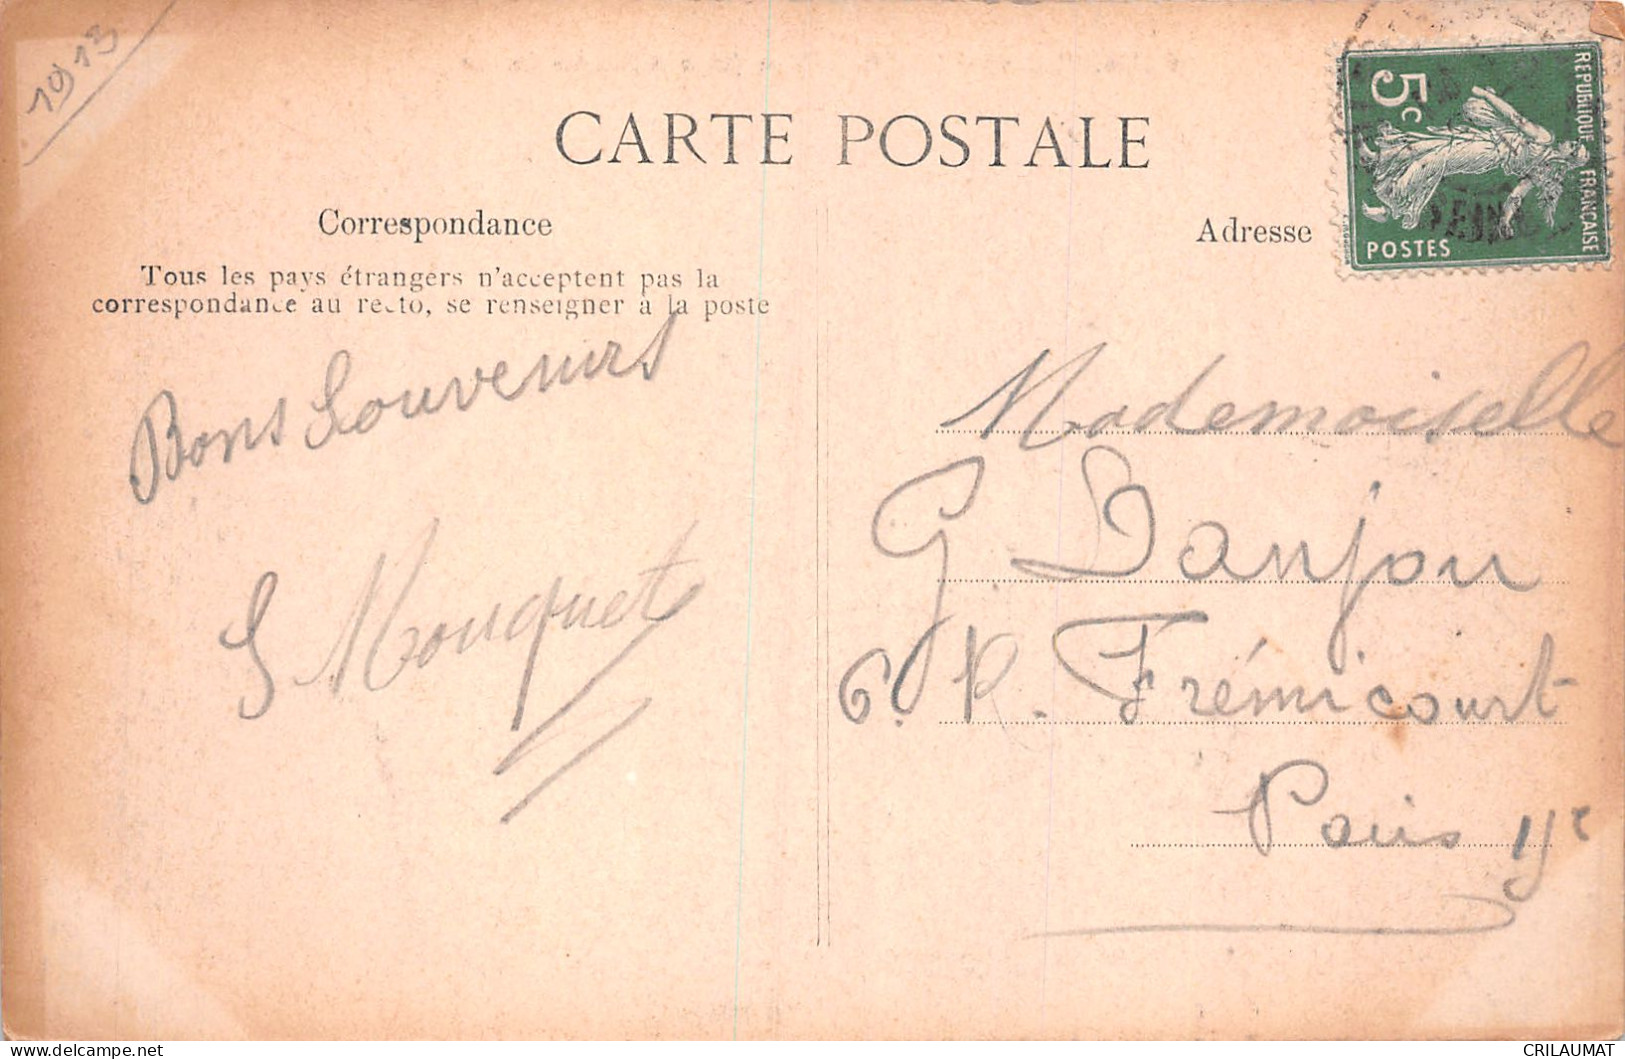 1913
CARTE POSTALE
Correspondance
Tous les pays étrangers n'acceptent pas la
correspondance au recto, se renseigner à la poste
Bons Souvenirs
Mouquet
Adresse
REPUBLIQUE FRANÇAISE
5c
POSTES
Mademoiselle
G. Danjou
6. R. Frémicourt
Paris
CRILAUMAT